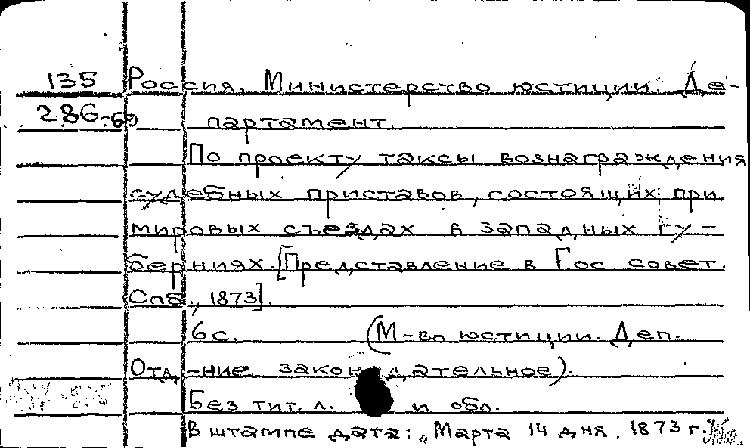 135 Россия. Министерство юстиции. Де-
286-69 партамент.
По проекту таксы вознаграждения
судебных приставов, состоящих при
мировых съездах в западных гу-
берниях. [Представление в Гос совет.
Спб., 1873].
6 с. (М-во юстиции. Деп.
Отд-ние законодательное).
Без тит. л. и обл.
В штампе дата: „Марта 14 дня. 1873 г.